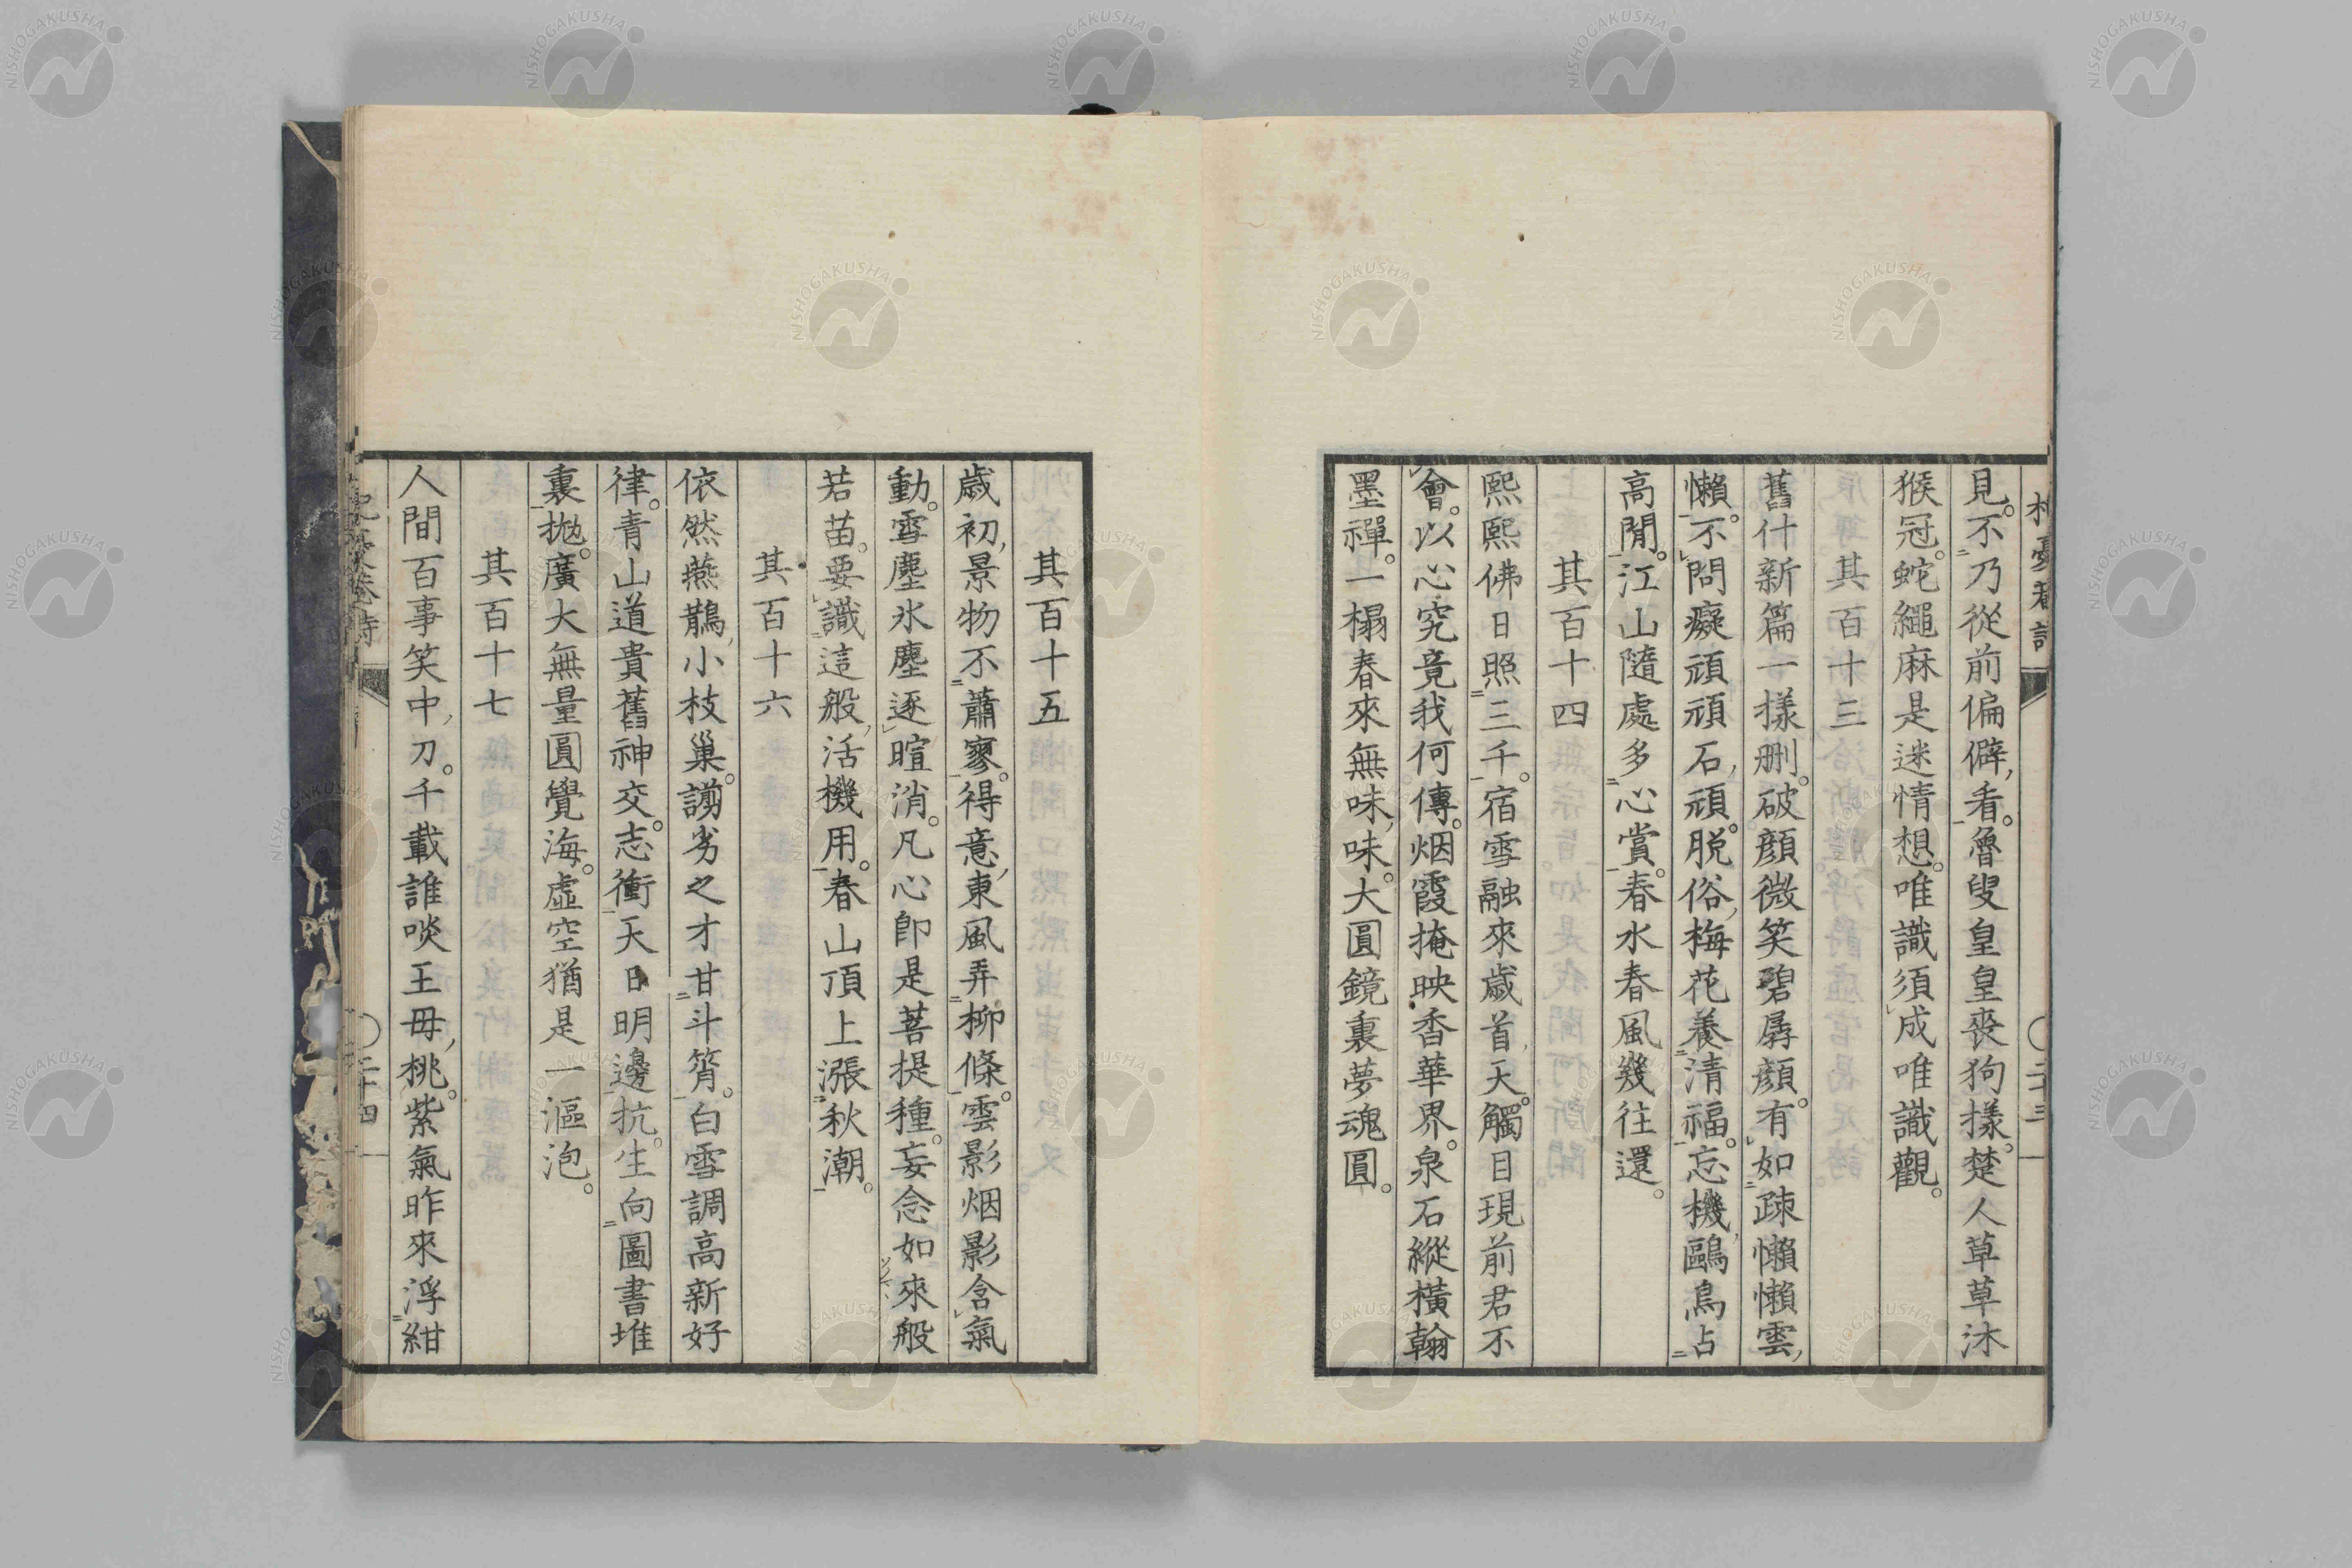 見。不乃從前偏僻,看。魯叟皇皇喪狗樣。楚人草草沐
猴冠。蛇繩麻是迷情想。唯識須成唯識觀。
其百十三
舊什新篇一樣刪。破顏微笑碧孱顏。有如疎懶懶雲,
懶。不問癡頑頑石,頑。脫俗,梅花養清福。忘機,鷗鳥占
高閒。江山隨處多心賞。春水春風幾往還。
其百十四
熙熙佛日照三千。宿雪融來歲首,天。觸目現前君不
會。以心究竟我何傳。烟霞掩映香華界。泉石縱橫翰
墨禪。一榻春來無味,味。大圓鏡裏夢魂圓。
二十三
其百十五
歲初,景物不蕭寥。得意,東風弄柳條。雲影烟影含氣
動。雪塵氷塵逐暄消。凡心卽是菩提種。妄念如來般
若苗。要識這般,活機用。春山頂上漲秋潮。
其百十六
依然燕鵲,小枝巢。謭劣之才甘斗筲。白雪調高新好
律。青山道貴舊神交。志衝天日明邊抗。生向圖書堆
裏拋。廣大無量圓覺海。虛空猶是一漚泡。
其百十七
人間百事笑中,刀。千載誰啖王母,桃。紫氣昨來浮紺
二十四
NISHOGAKUSHA